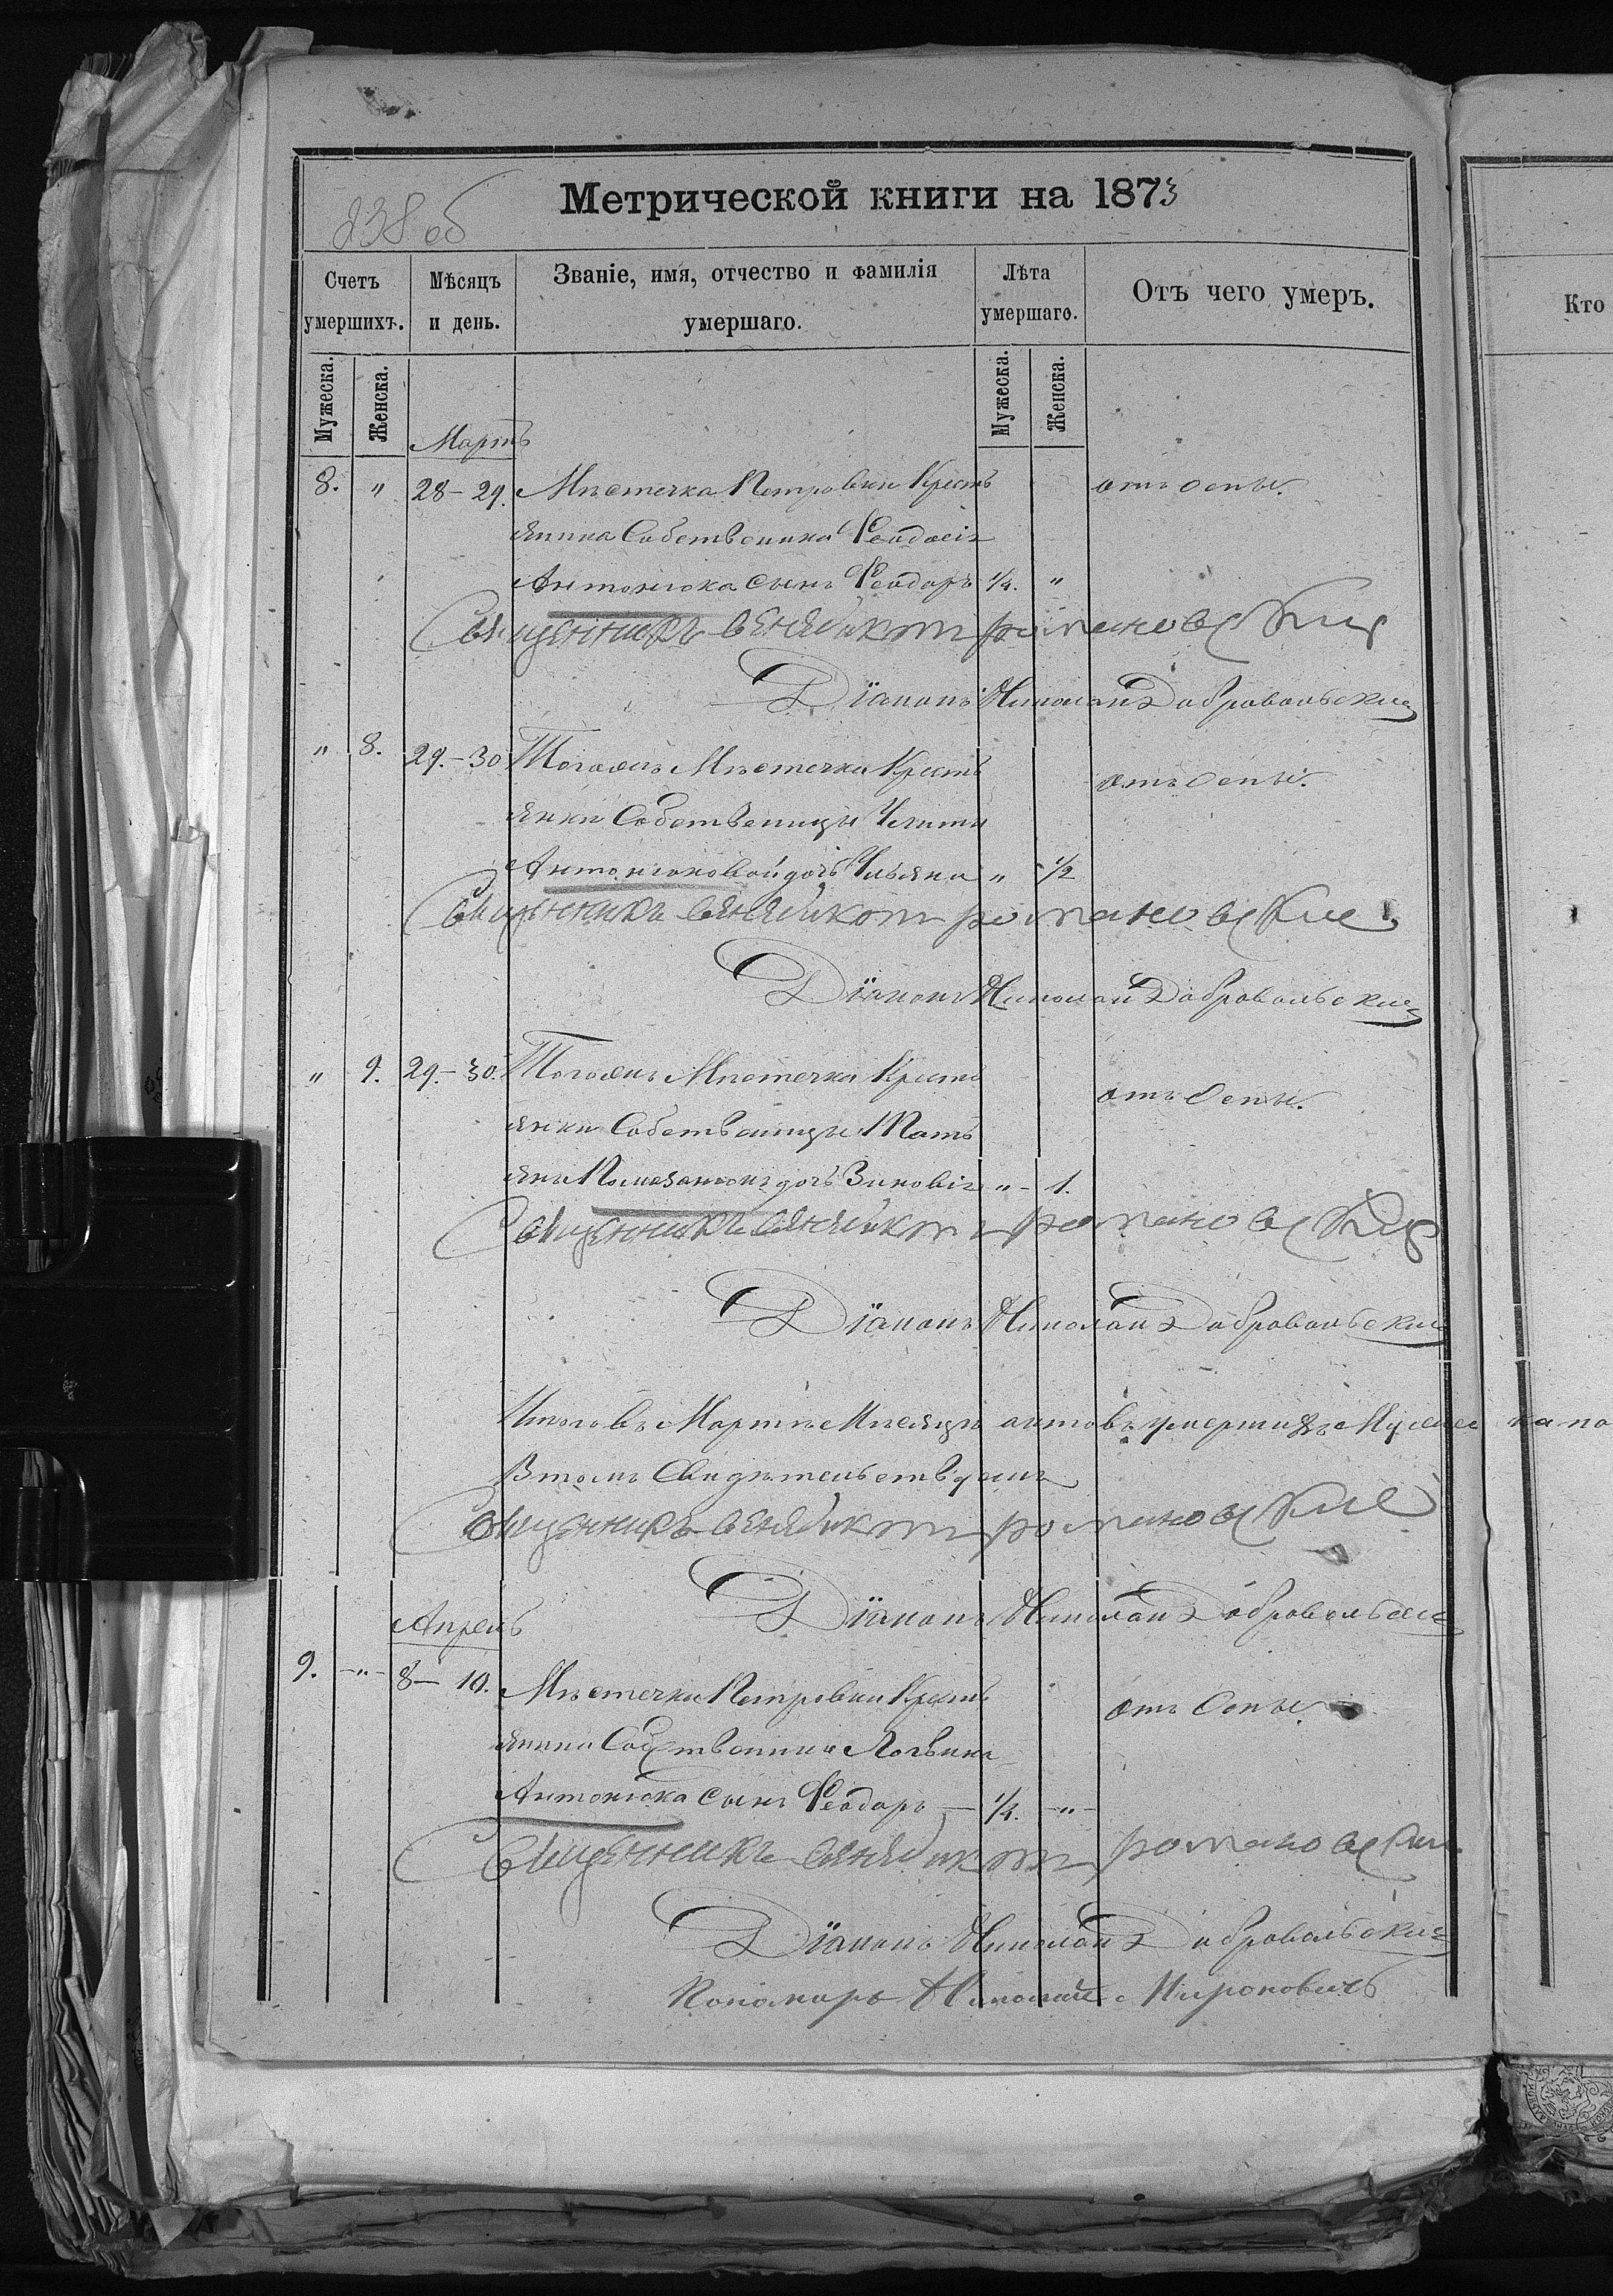 238 об
Метрической книги на 1873
Счетъ умершихъ.
Мѣсяцъ и день.
Званіе, имя, отчество и фамилія умершаго.
Лѣта умершаго.
Отъ чего умеръ.
Кто
Мужеска.
Женска.
Мужеска.
Женска.
Мартъ
8. " 28-29. Мѣстечка Петровки Кресть отъ оспы.
янина Собственика Феодосія
Антонюка сынъ Феодоръ 1/4. "
Священникъ Венедиктъ романовский
Діаконъ Николай Добровольский
" 8. 29.-30 Тогожъ Мѣстечка Кресть отъ Оспы.
янки Собственицы
Антонюковой дочь Ульяна " 1/2
Священникъ Венедиктъ романовский
Діаконъ Николай Добровольский
" 9. 29.-30. Тогожъ Мѣстечка Кресть отъ Оспы.
янки Собственицы Тать
яны дочь Зиновія " - 1.
Священникъ Венедиктъ романовский
Діаконъ Николай Добровольский
Итого въ Мартѣ Мѣсяцѣ актовъ умершихъ Мужес ка по
Втомъ Свидѣтельствуемъ
Священникъ Венедиктъ романовский
Діаконъ Николай Добровольский
Апрель
9. -"- 8-10. Мѣстечка Петровки Кресть отъ Оспы.
янина Собственника Логвина
Антонюка сынъ Феодоръ - 1/4. -"-
Священникъ Венедиктъ романовский
Діаконъ Николай Добровольский
Пономарь Николай Миронович